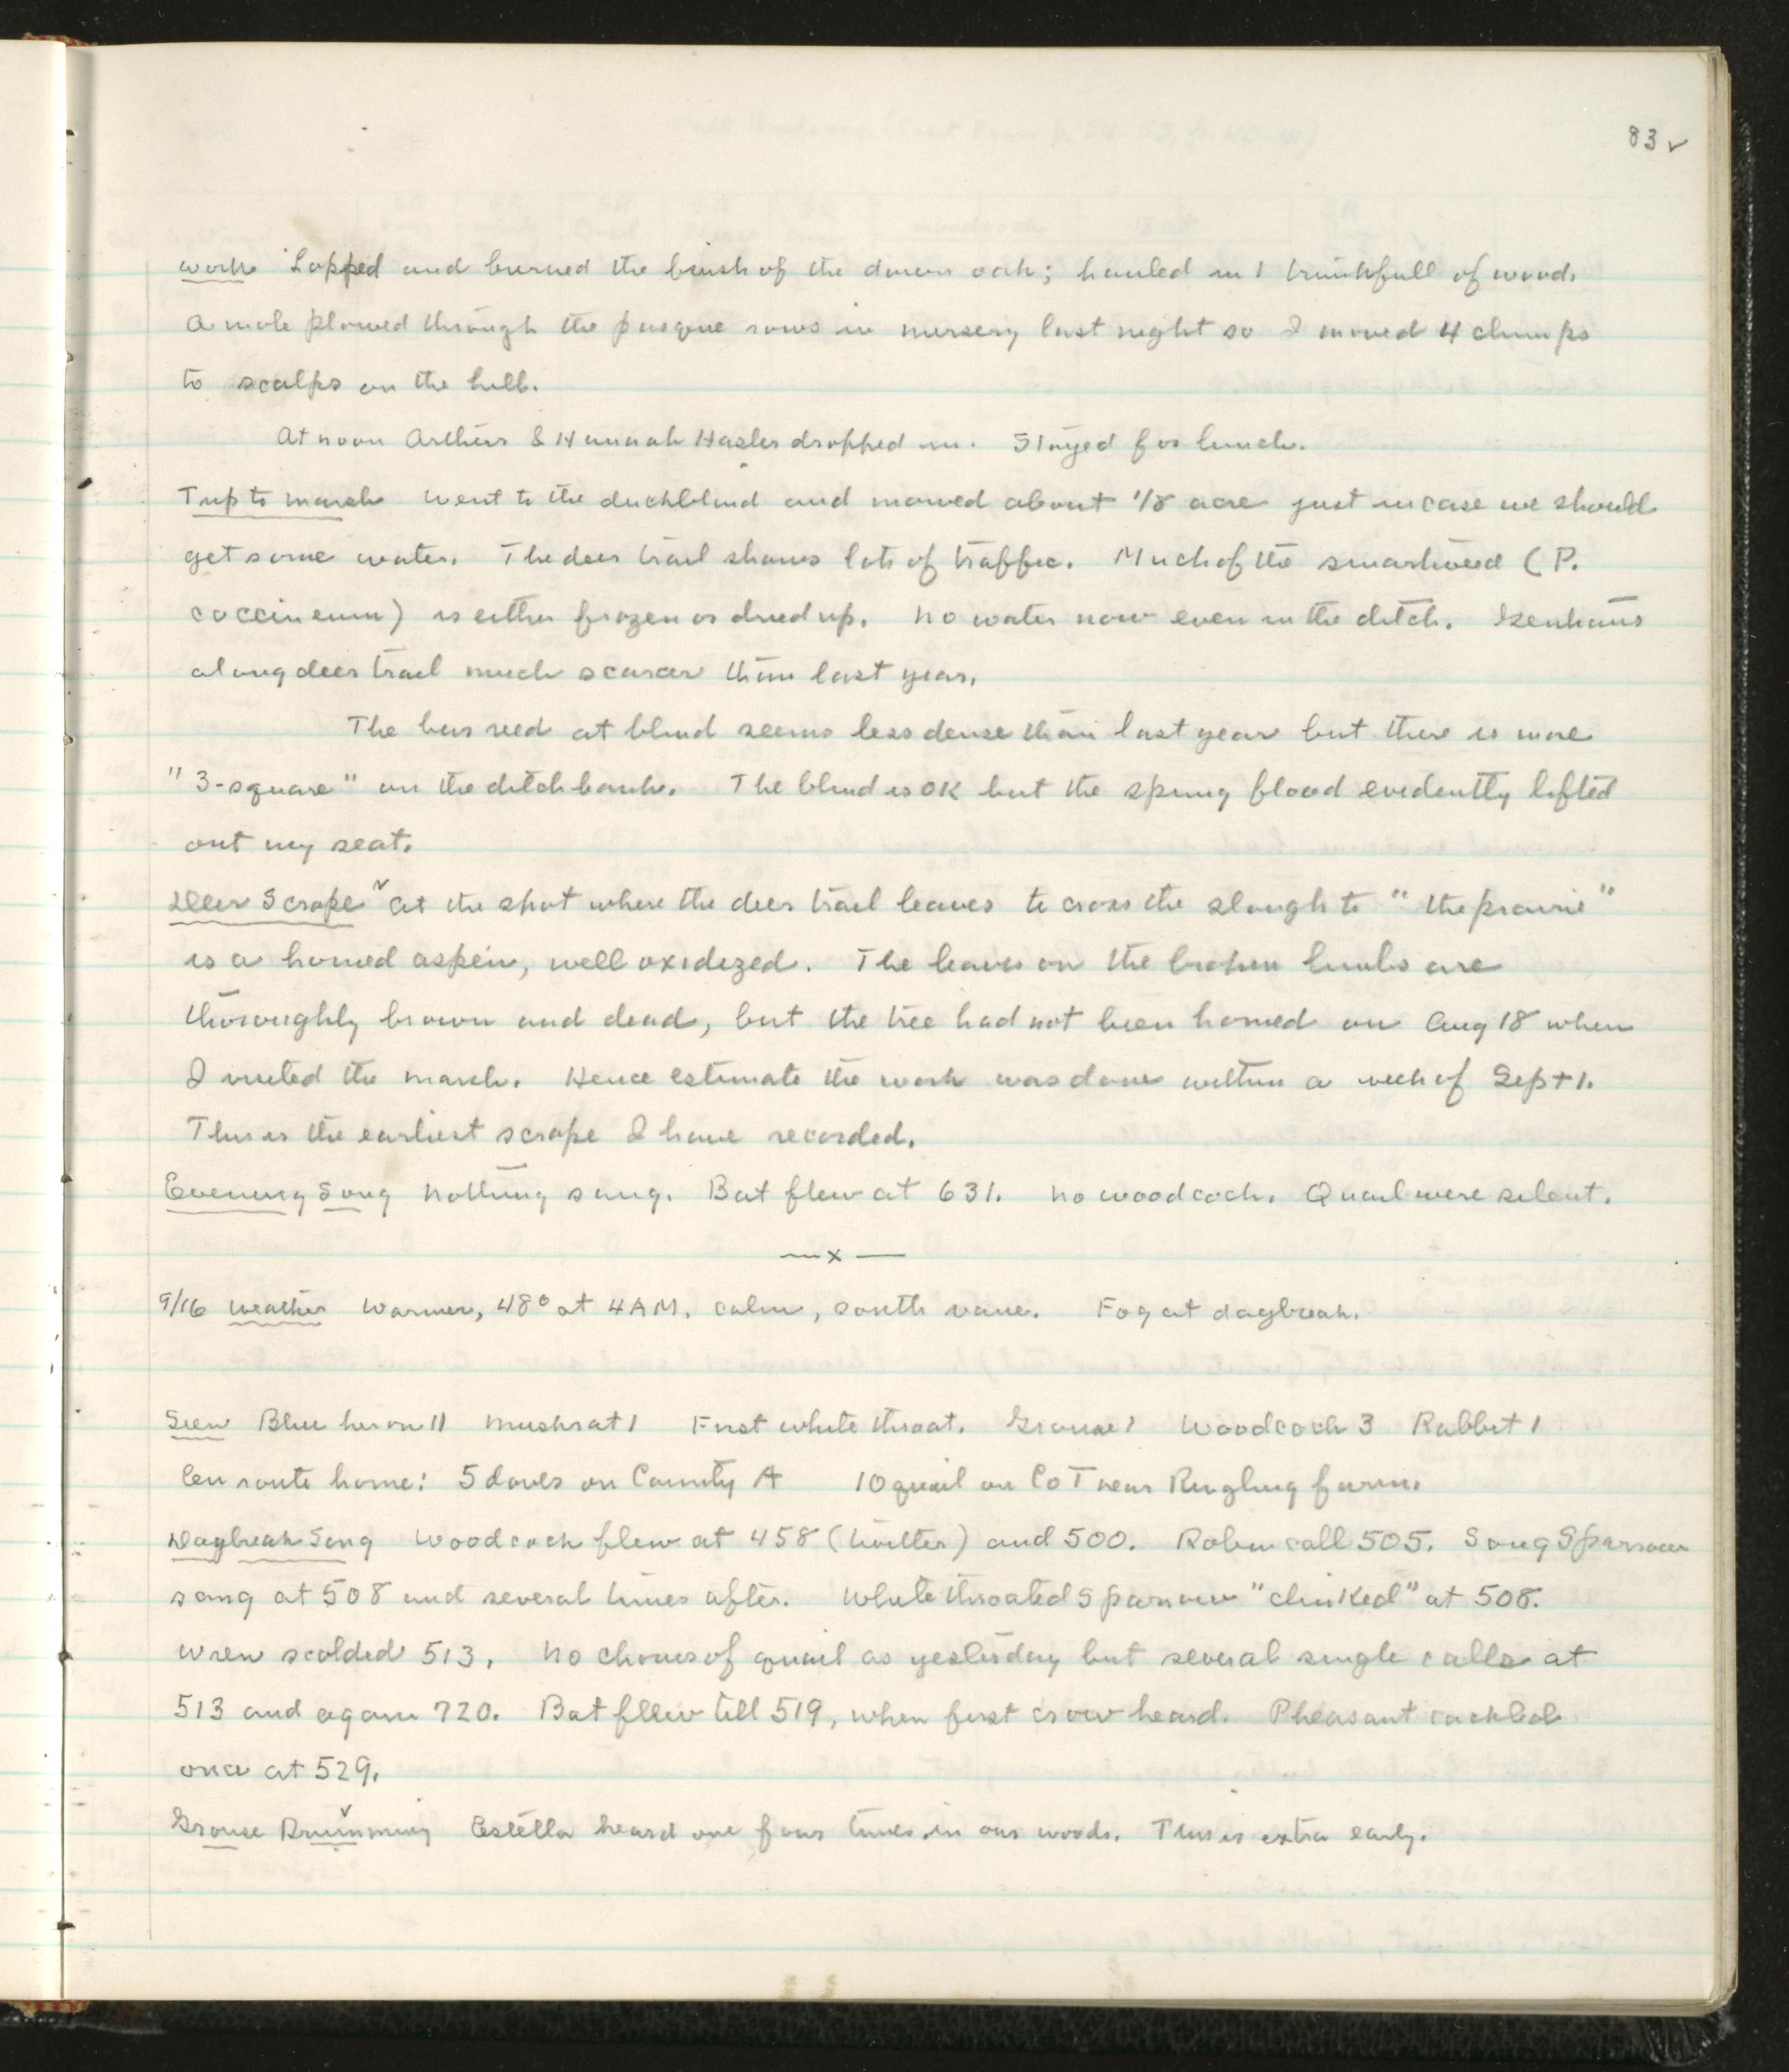 83 ✓
Work Lopped and burned the brush of the down oak; hauled in 1 trunkfull of wood.
A mole plowed through the pasque rows in nursery last night so I moved 4 clumps
to scalps on the hill.
At noon Arthur & Hannah Hasler dropped in. Stayed for lunch.
Trip to marsh Went to the duckblind and mowed about 1/8 acre just in case we should
get some water. The deer trail shows lots of traffic. Much of the smartweed (P.
coccineum) is either frozen or dried up. No water now even in the ditch. Gentians
along deer trail much scarcer than last year.
The bur reed at blind seems less dense than last year but there is more
"3-square" on the ditchbank. The blind is OK but the spring flood evidently lifted
out my seat.
Deer Scrape ✓ At the spot where the deer trail leaves to cross the slough to "the prairie"
is a horned aspen, well oxidized. The leaves on the broken limbs are
thoroughly brown and dead, but the tree had not been horned on Aug 18 when
I visited the marsh. Hence estimate the work was done within a week of Sept 1.
This is the earliest scrape I have recorded.
Evening Song Nothing sang. Bat flew at 631. No woodcock. Quail were silent.
— x —
9/16 Weather Warmer, 48° at 4 AM, calm, south vane. Fog at daybreak.
Seen Blue heron 11 Muskrat 1 First white throat. Grouse 1 Woodcock 3 Rabbit 1
En route home: 5 doves on County A 10 quail on Co T near Ringling farm.
Daybreak Song Woodcock flew at 458 (twitter) and 500. Robin call 505. Song Sparrow
sang at 508 and several times after. White throated Sparrow "clinked" at 508.
Wren scolded 513. No chorus of quail as yesterday but several single calls at
513 and again 720. Bat fllew till 519, when first crow heard. Pheasant cackled
once at 529.
Grouse Drumming ✓ Estella heard one four times in our woods. This is extra early.